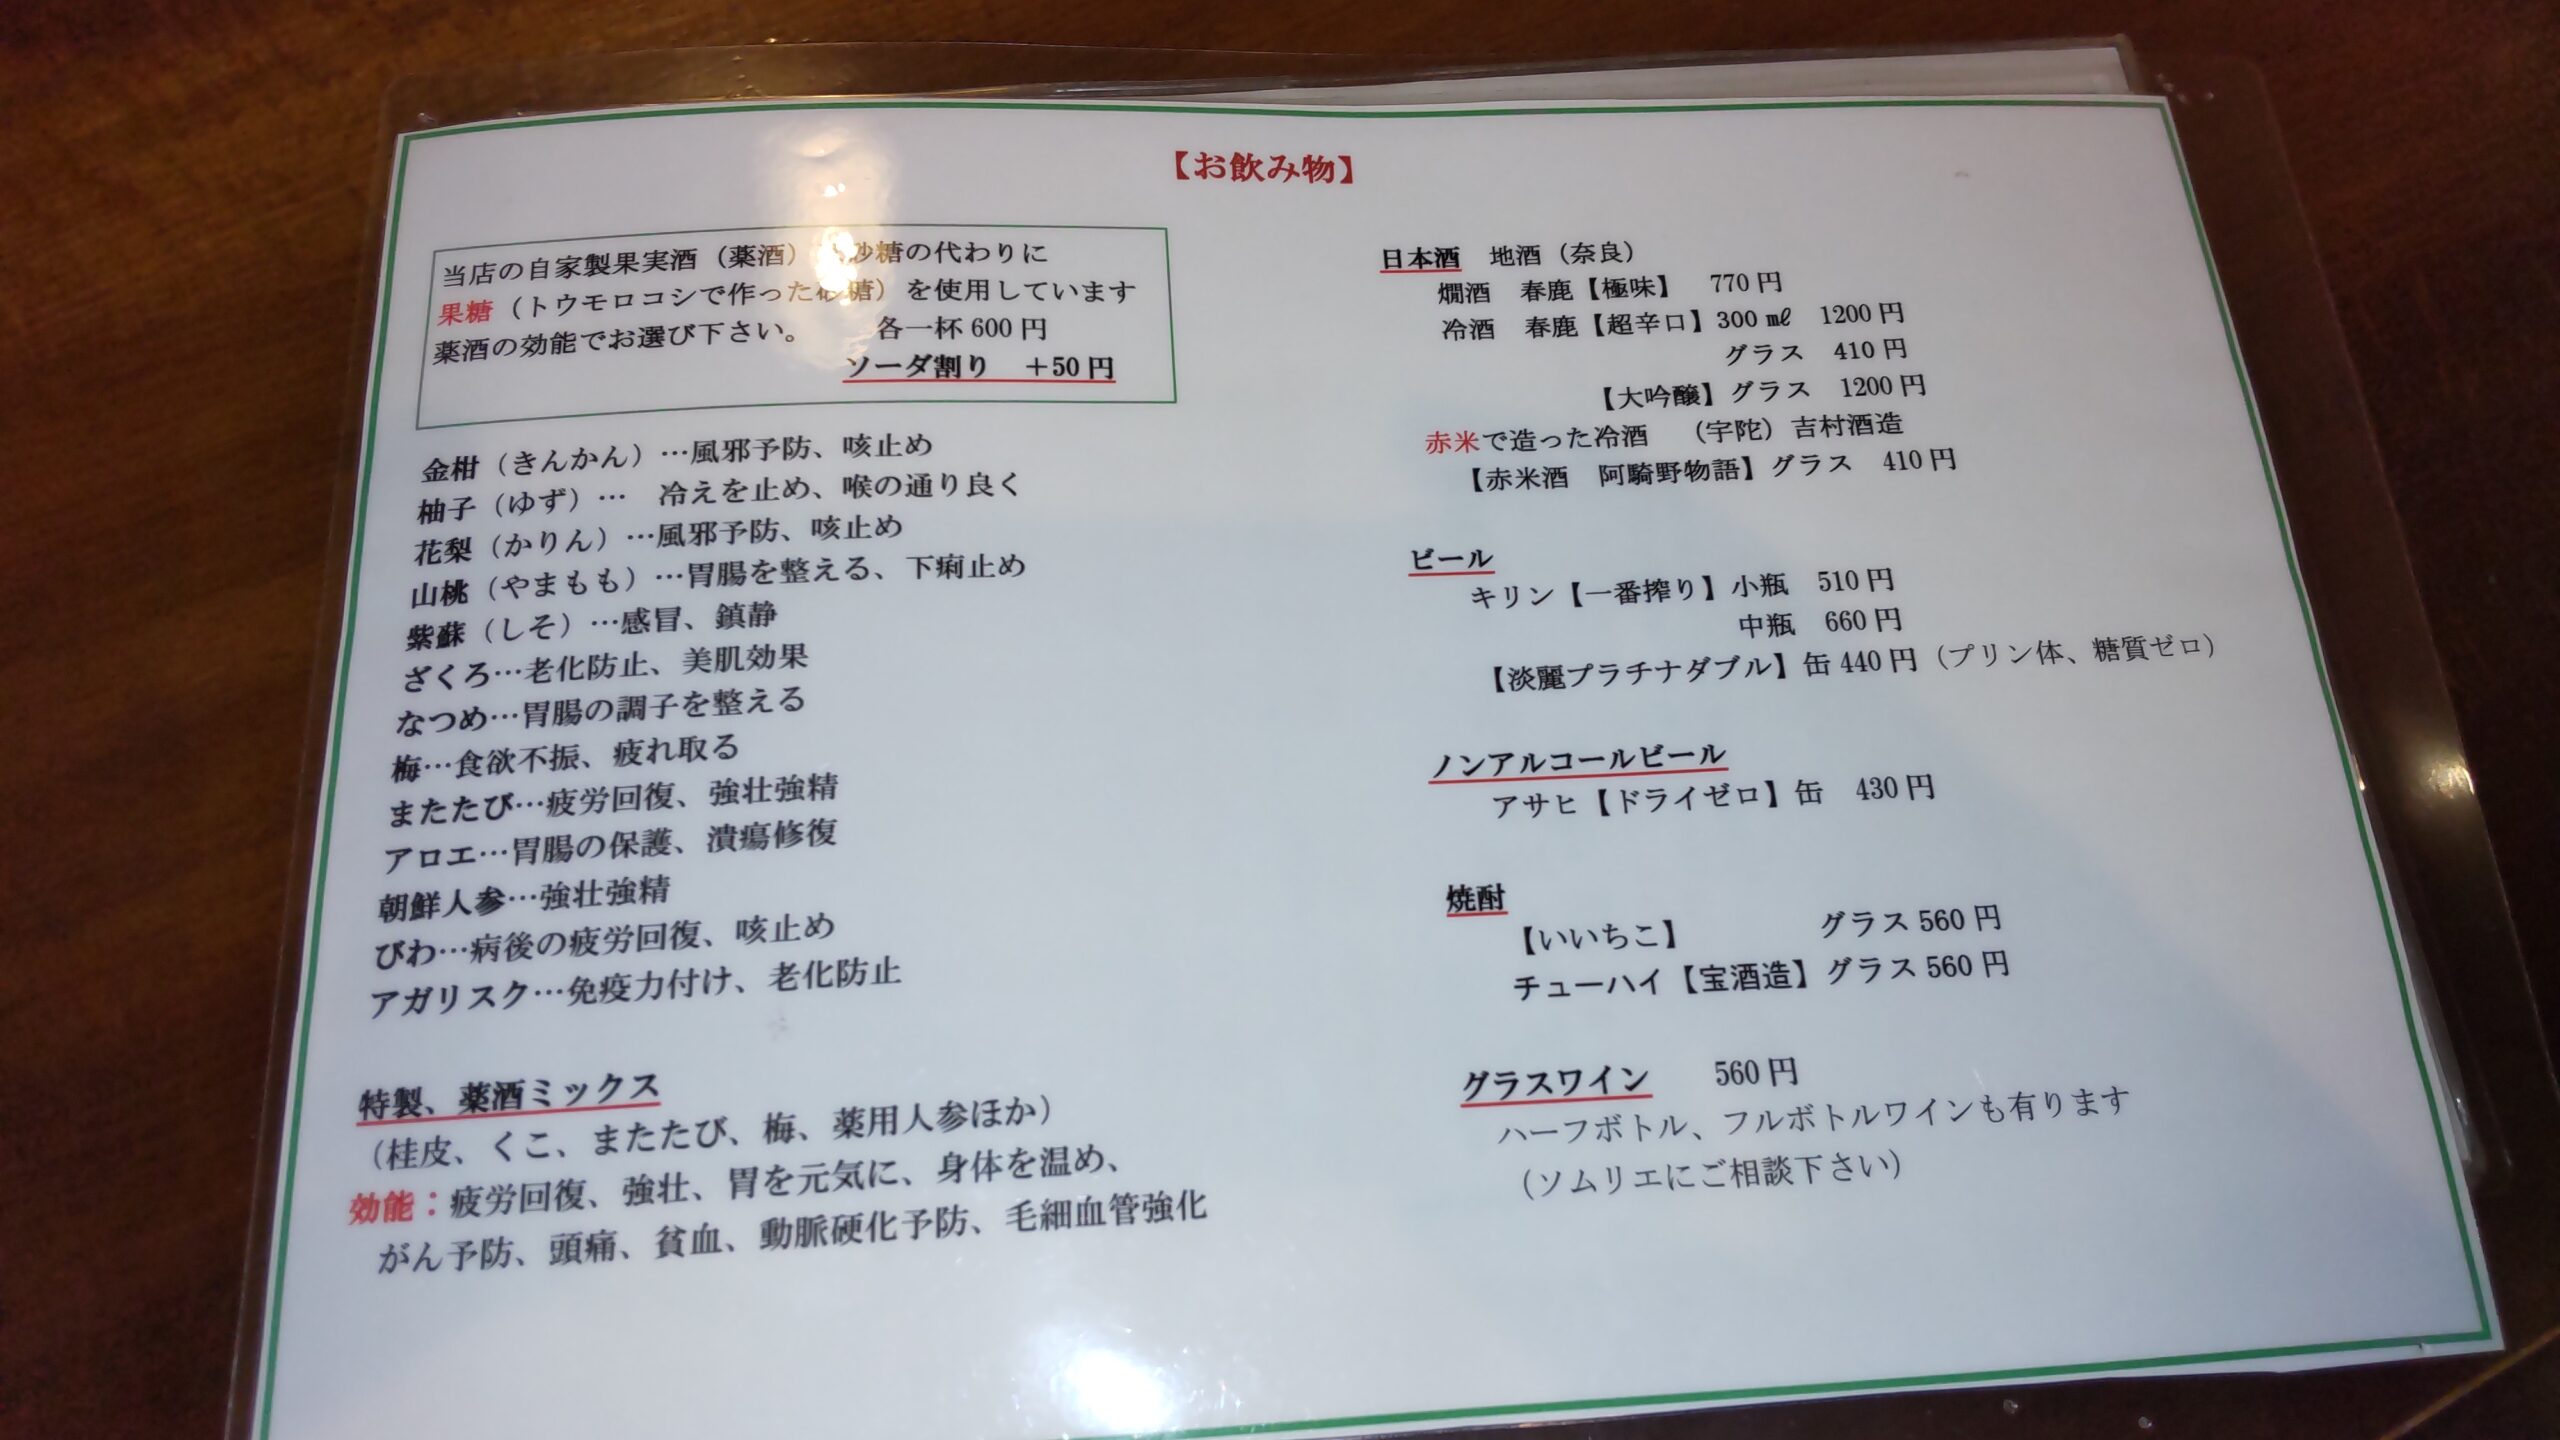 【お飲み物】
当店の自家製果実酒（薬酒）砂糖の代わりに
果糖（トウモロコシで作った砂糖）を使用しています
薬酒の効能でお選び下さい。　各一杯 600 円
ソーダ割り　＋50 円
金柑（きんかん）…風邪予防、咳止め
柚子（ゆず）…　冷えを止め、喉の通り良く
花梨（かりん）…風邪予防、咳止め
山桃（やまもも）…胃腸を整える、下痢止め
紫蘇（しそ）…感冒、鎮静
ざくろ…老化防止、美肌効果
なつめ…胃腸の調子を整える
梅…食欲不振、疲れ取る
またたび…疲労回復、強壮強精
アロエ…胃腸の保護、潰瘍修復
朝鮮人参…強壮強精
びわ…病後の疲労回復、咳止め
アガリスク…免疫力付け、老化防止
特製、薬酒ミックス
（桂皮、くこ、またたび、梅、薬用人参ほか）
効能：疲労回復、強壮、胃を元気に、身体を温め、
がん予防、頭痛、貧血、動脈硬化予防、毛細血管強化
日本酒　地酒（奈良）
燗酒　春鹿【極味】　770 円
冷酒　春鹿【超辛口】300 ㎖　1200 円
グラス　410 円
【大吟醸】グラス　1200 円
赤米で造った冷酒　（宇陀）吉村酒造
【赤米酒　阿騎野物語】グラス　410 円
ビール
キリン【一番搾り】小瓶　510 円
中瓶　660 円
【淡麗プラチナダブル】缶 440 円（プリン体、糖質ゼロ）
ノンアルコールビール
アサヒ【ドライゼロ】缶　430 円
焼酎
【いいちこ】　グラス 560 円
チューハイ【宝酒造】グラス 560 円
グラスワイン　560 円
ハーフボトル、フルボトルワインも有ります
（ソムリエにご相談下さい）